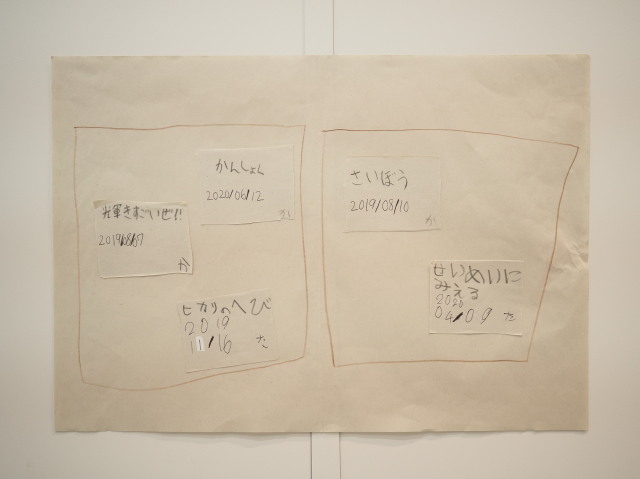 かんしょく
2020/06/12
か
光軍きすごいぜ!!
2019/8/7
か
ヒカリのへび
2019
11/16 た
さいぼう
2019/08/10
か
せいめいに
みえる
2020
04/09 た